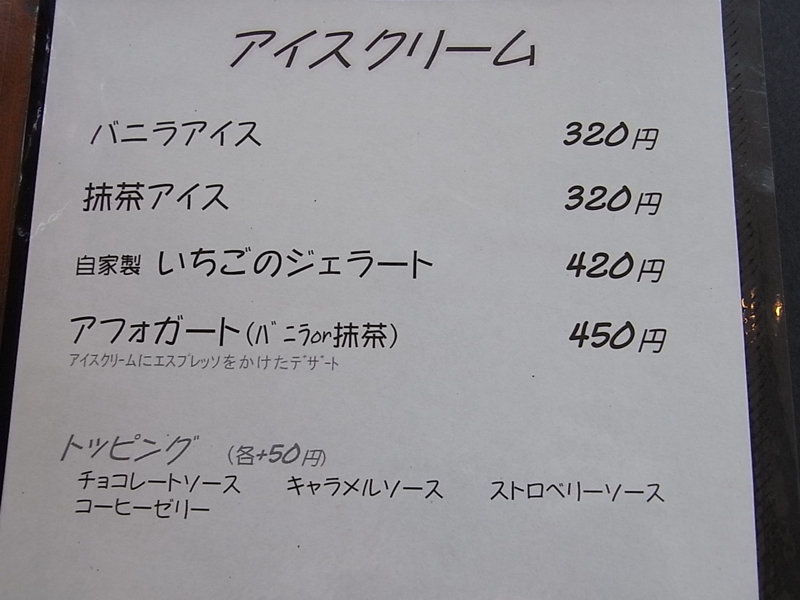 アイスクリーム
バニラアイス 320円
抹茶アイス 320円
自家製 いちごのジェラート 420円
アフォガート(バニラor抹茶) 450円
アイスクリームにエスプレッソをかけたデザート
トッピング (各+50円)
チョコレートソース キャラメルソース ストロベリーソース
コーヒーゼリー